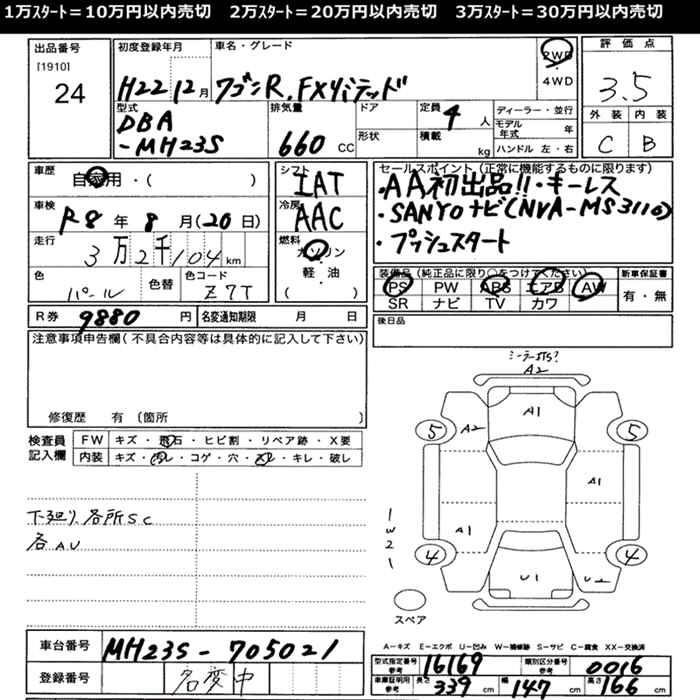 1万ｽﾀｰﾄ＝10万円以内売切　2万ｽﾀｰﾄ＝20万円以内売切　3万ｽﾀｰﾄ＝30万円以内売切
出品番号
[1910]
24
初度登録年月
H22 12月
車名・グレード
ワゴンR.FXリミテッド
2WD
4WD
評価点
3.5
外装 内装
C B
型式
DBA
-MH23S
排気量
660 CC
ドア
形状
定員
4人
積載
kg
ディーラー・並行
モデル年式 年
ハンドル 左・右
車歴
自家用・( )
車検
R8年 8月(20日)
走行
3万2千104km
色
パール
色替
色コード
Z7T
シフト
IAT
冷房
AAC
燃料
ガソリン
軽・油
( )
セールスポイント（正常に機能するものに限ります）
・AA初出品!!・キーレス
・SANYOナビ(NVA-MS3110)
・プッシュスタート
装備品（純正品に限り○をつけてください）
PS PW ABS エアB AW
SR ナビ TV カワ
新車保証書
有・無
R券 9880 円
名変通知期限 月 日
後日品
注意事項申告欄(不具合内容等は具体的に記入して下さい)
修復歴 有（箇所 ）
検査員
記入欄
FW キズ・飛石・ヒビ割・リペア跡・X要
内装 キズ・汚レ・コゲ・穴・スレ・キレ・破レ
下廻り各所SC
各AU
A2
A1
5
A2
5
A1
A1
1
W
2
1
4
4
U1
U2
スペア
A－キズ E－エクボ U－凹み W－補修跡 S－サビ C－腐食 XX－交換済
車台番号 MH23S-705021
登録番号 名変中
型式指定番号 参考 16169
類別区分番号 参考 0016
車庫証明用 参考 長さ 339 cm 幅 147 cm 高さ 166 cm